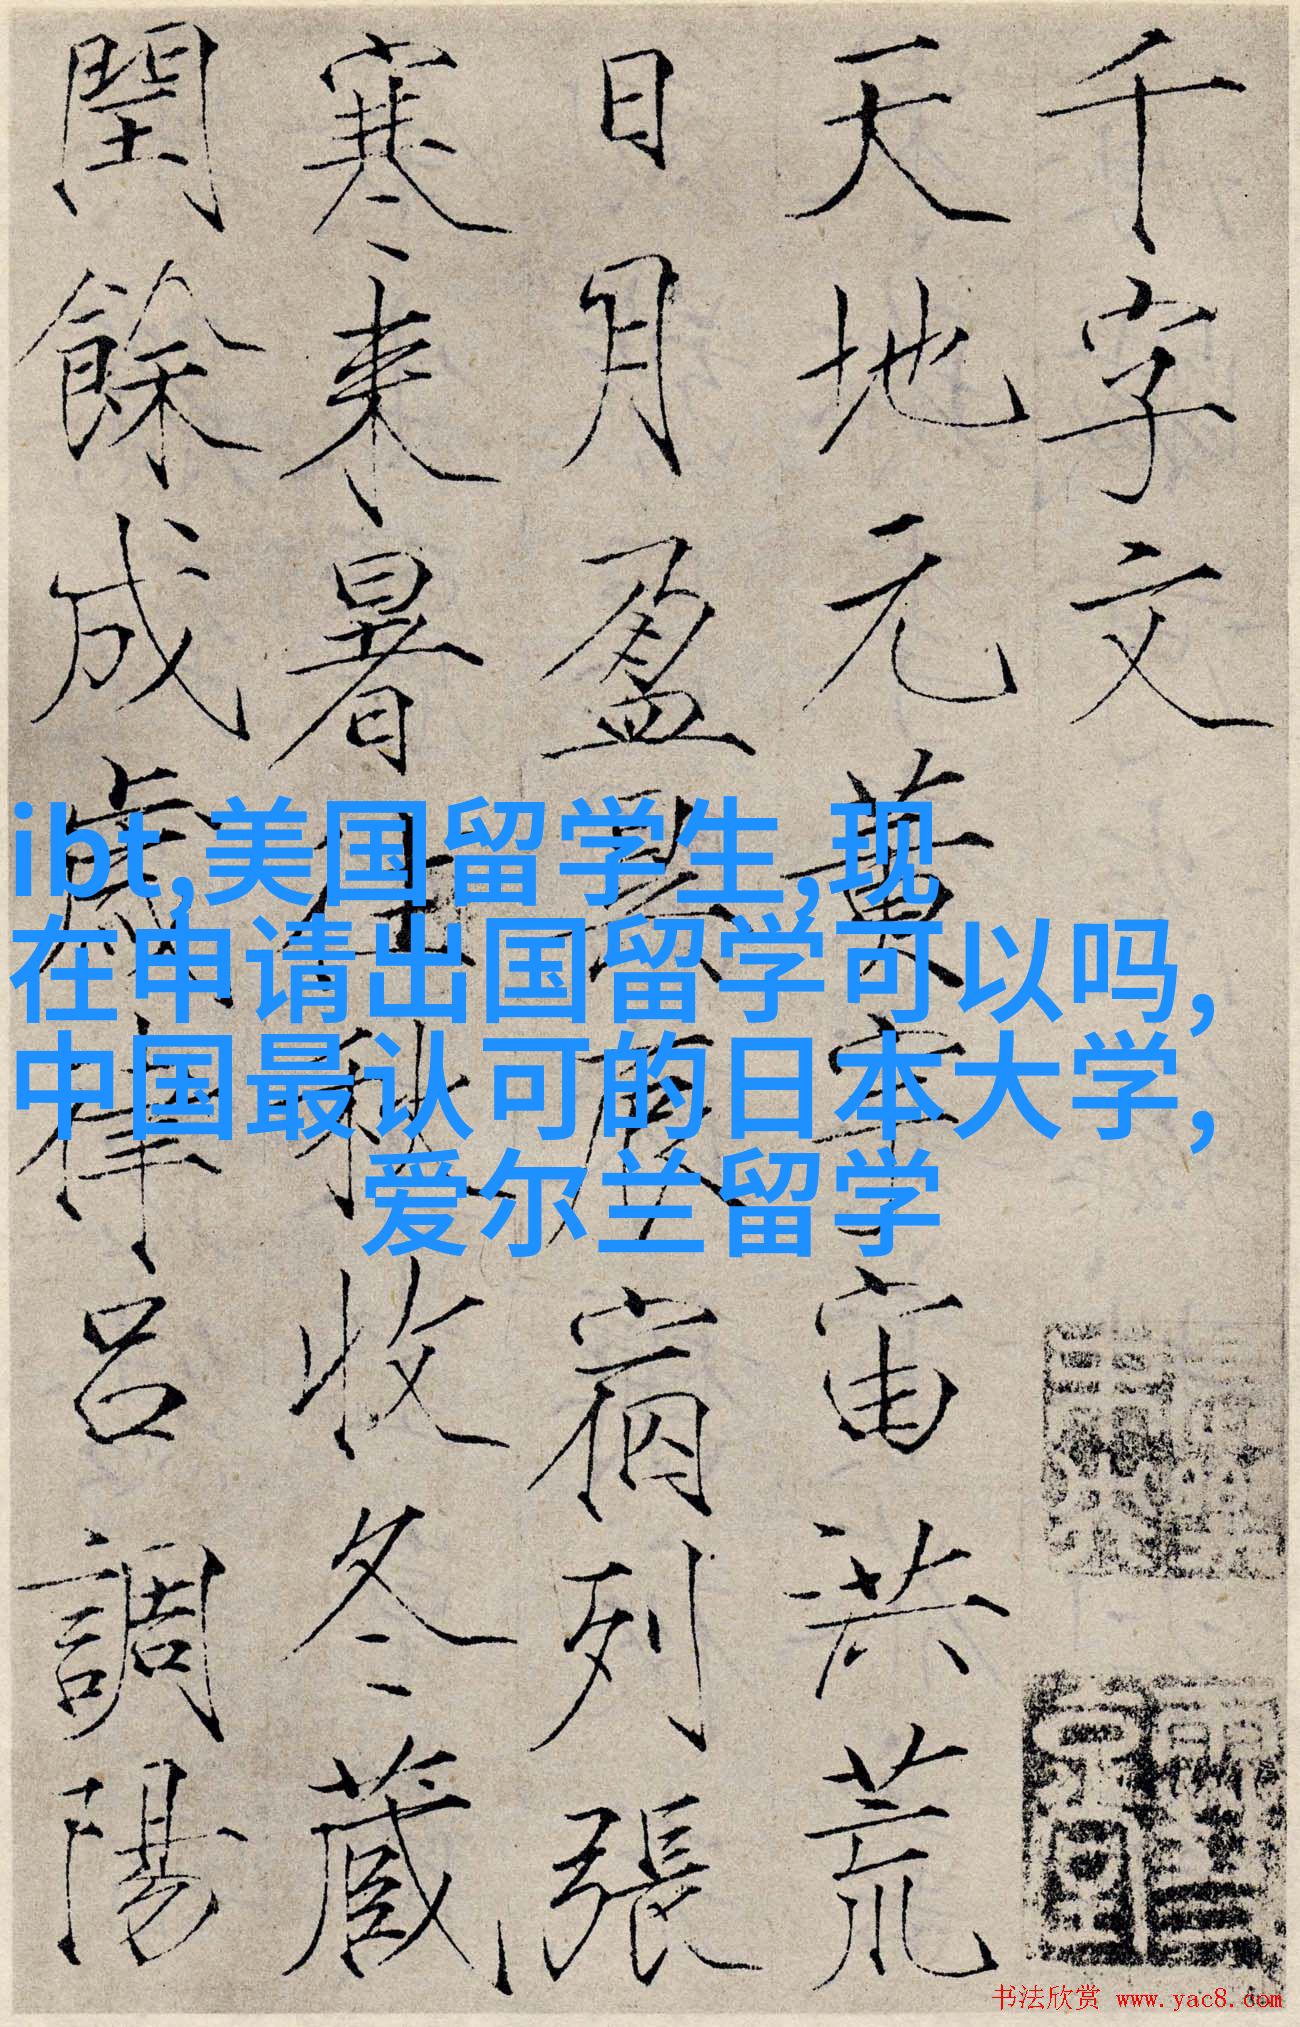 千字文
天地元黄宇宙洪荒
日月盈昃辰宿列張
寒来暑往秋收冬蔵
閏餘成歳律呂調陽
ibt,美国留学生,现
在申请出国留学可以吗,
中国最认可的日本大学,
爱尔兰留学
书法欣赏 www.yac8.com